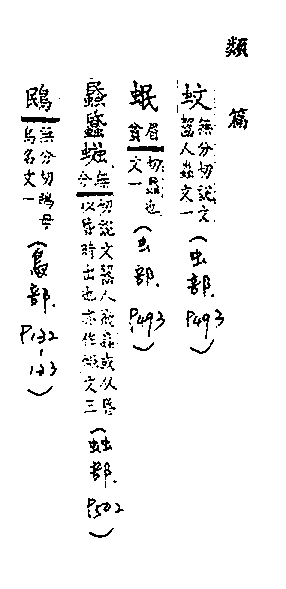 類篇
蚊 無分切說文齧人蟲文一(虫部.P493)
蚊 眉貧切蟲也文一(虫部.P493)
蟁 無分切說文齧人飛蟲或从昏以昏時出也亦作 文三(䖵部.P502)
無分切 母鳥名文一(鳥部.P132-133)